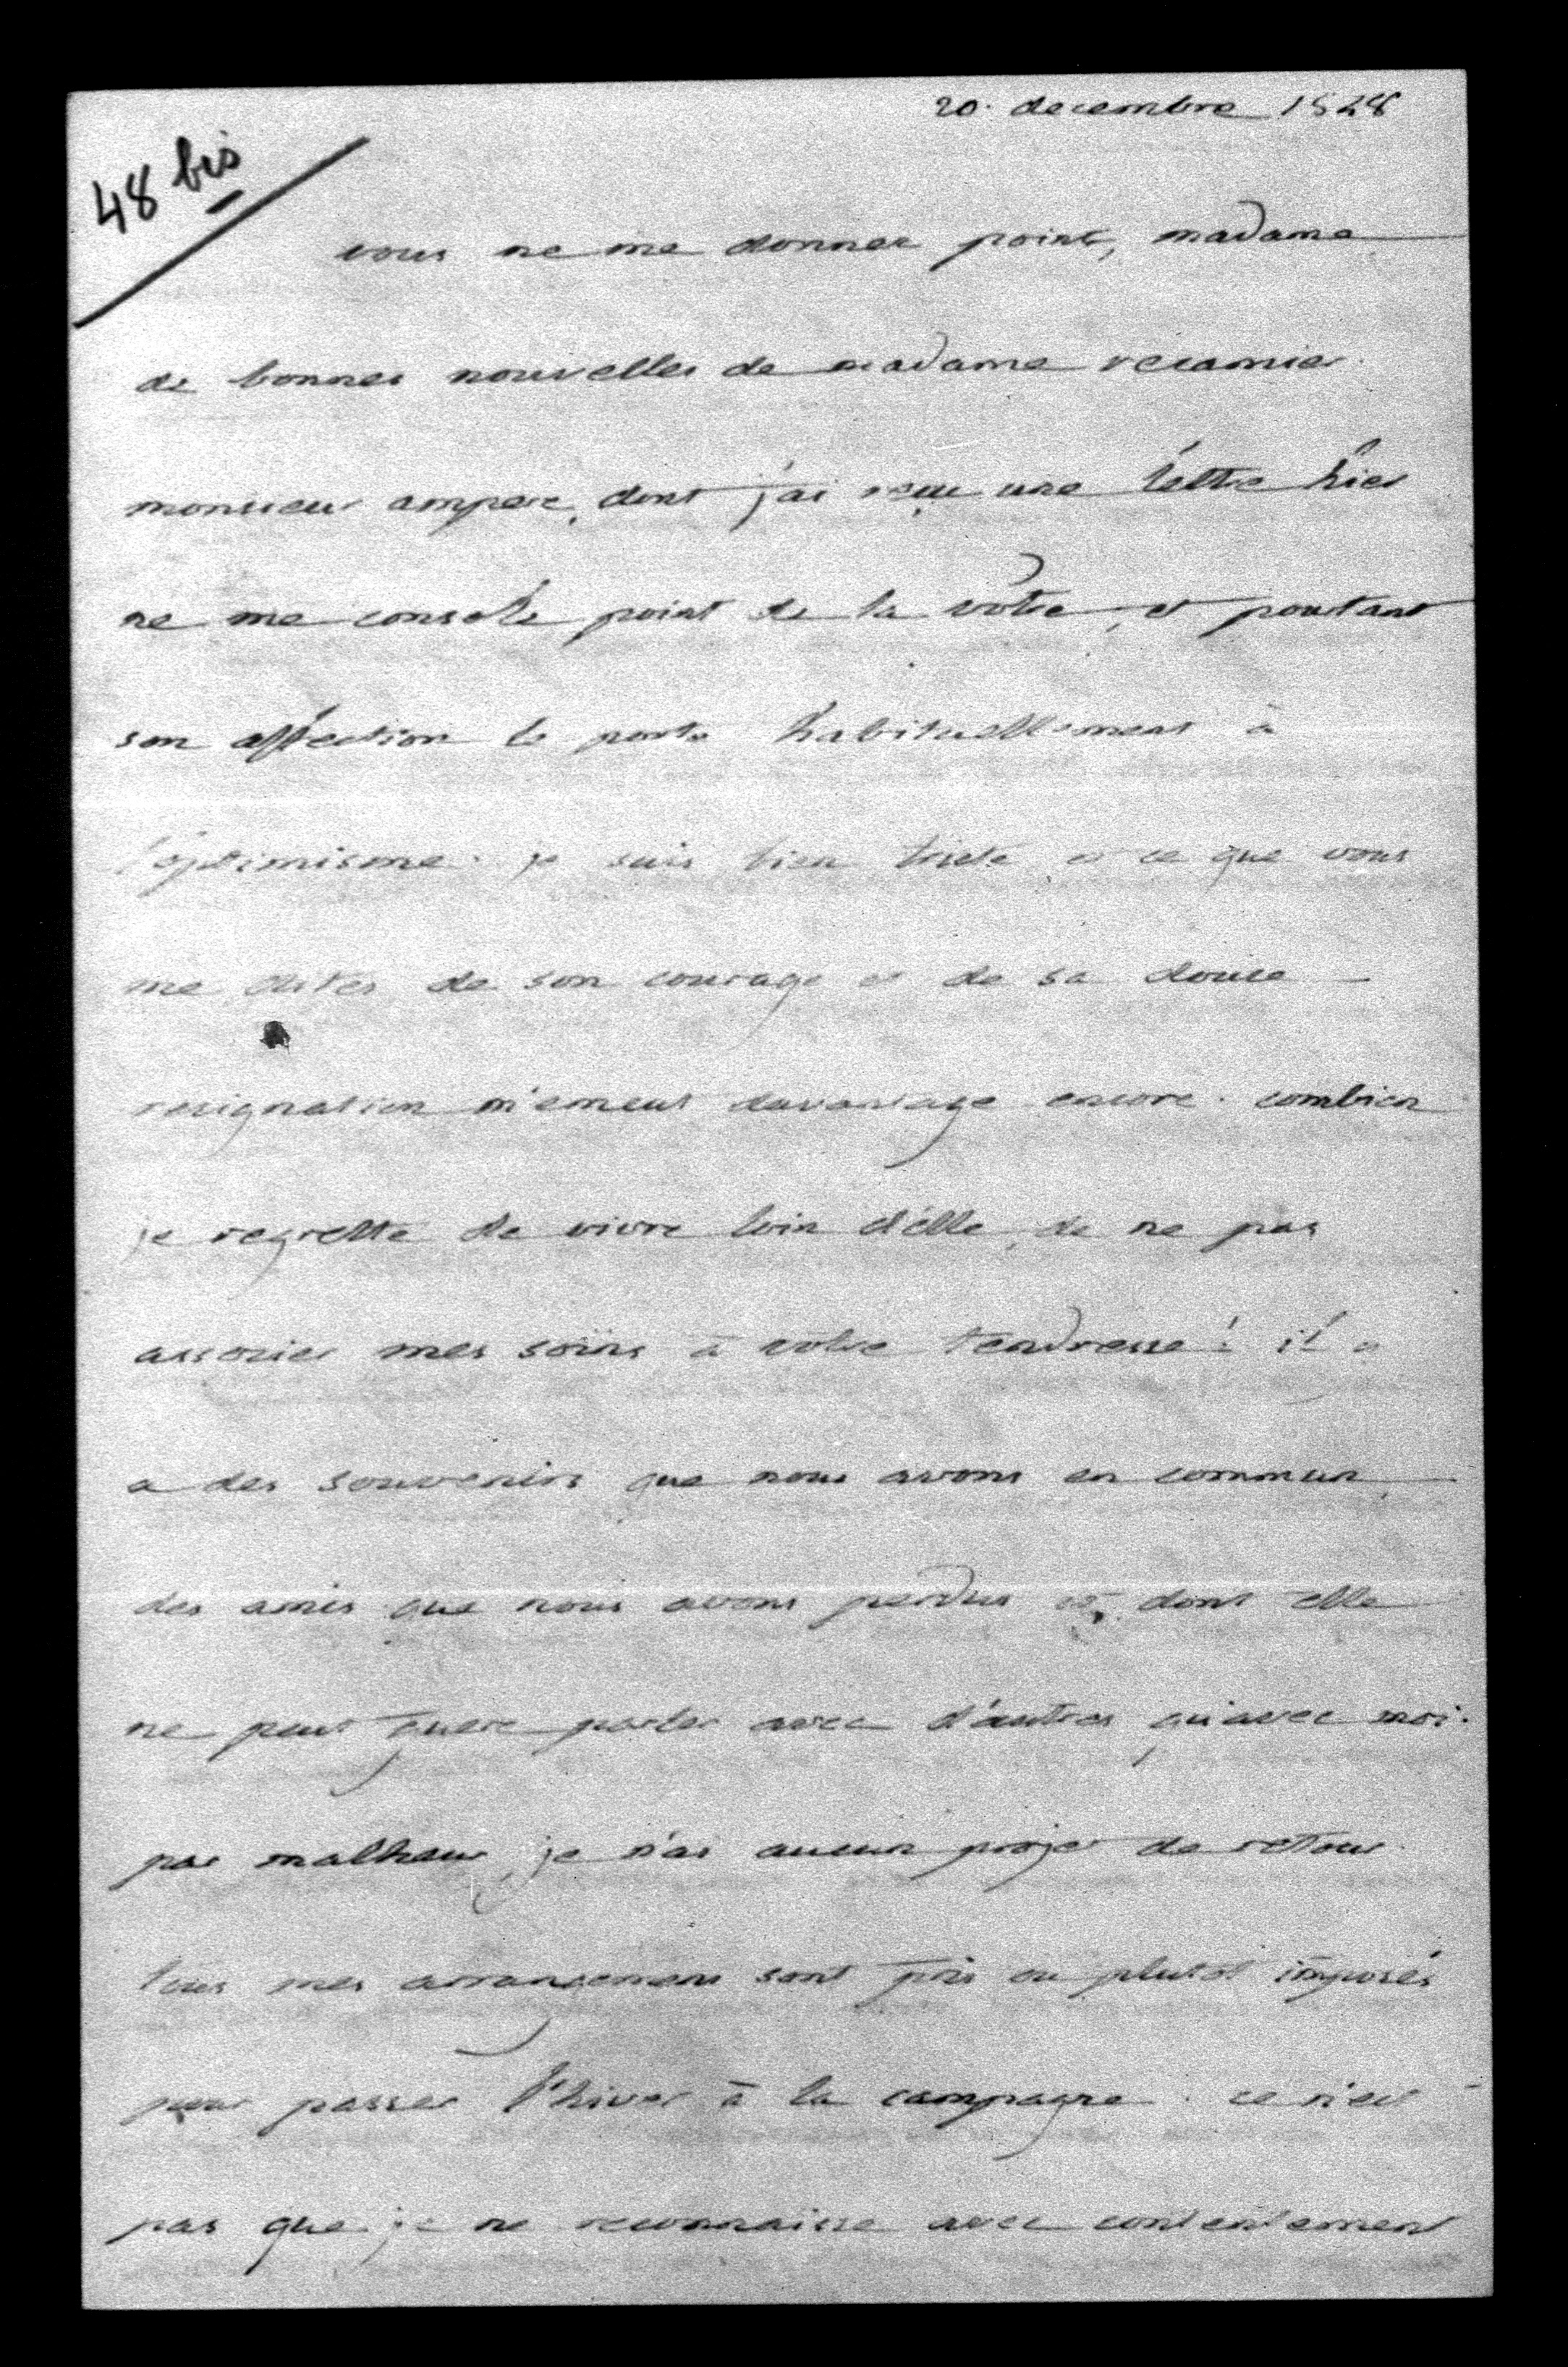 20. decembre 1828
48 bis
vous ne me donnez point, madame
de bonnes nouvelles de madame recamier.
monsieur ampere, dont j'ai reçu une lettre hier
ne me console point de la votre, et pourtant
son affection le porte habituellement à
l'optimisme. je suis bien triste et ce que vous
me dites de son courage et de sa douce
resignation m'emeut davantage encore. combien
je regrette de vivre loin d'elle, de ne pas
associer mes soins à votre tendresse! il y
a des souvenirs que nous avons en commun,
des amis que nous avons perdus et dont elle
ne peut guere parler avec d'autres qu'avec moi.
par malheur, je n'ai aucun projet de retour.
tous mes arrangemens sont pris ou plutot imposés
pour passer l'hiver à la campagne. ce n'est
pas que je ne reconnaisse avec contentement